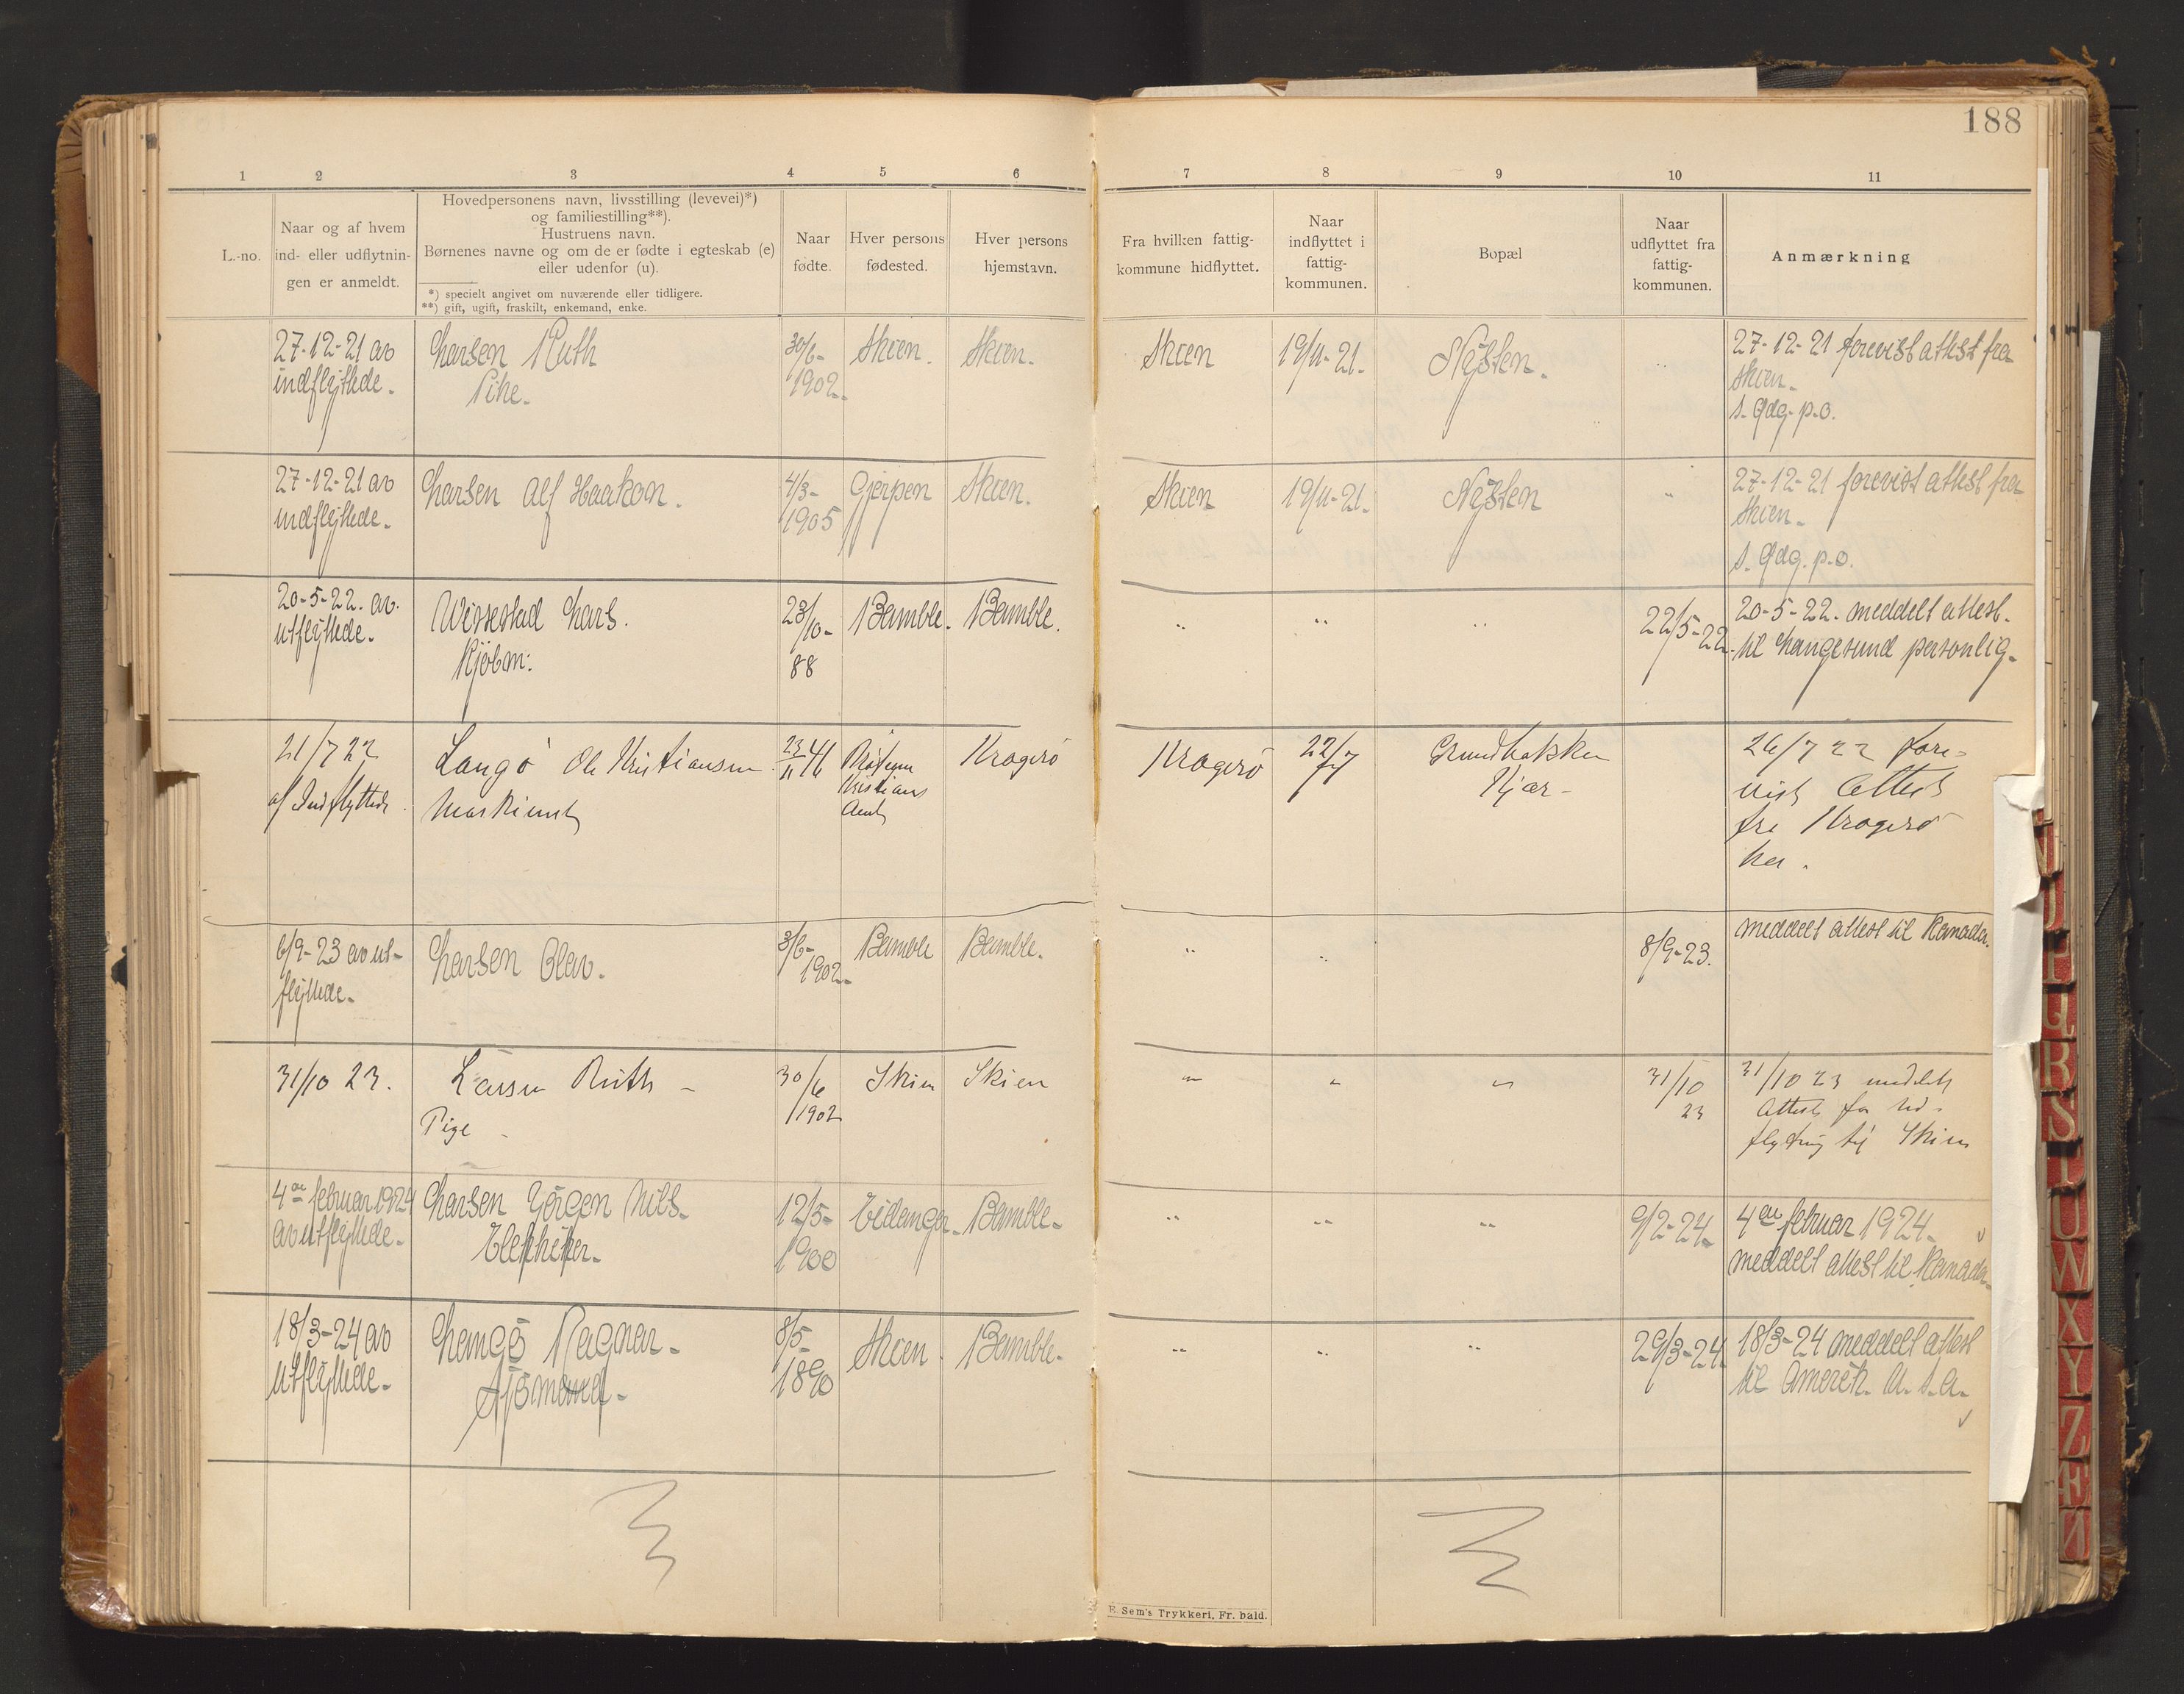 188
1 2 3 4 5 6 7 8 9 10 11
L.-no.
Naar og af hvem
ind- eller udflytnin-
gen er anmeldt.
Hovedpersonens navn, livsstilling (levevei)*)
og familiestilling**).
Hustruens navn.
Børnenes navne og om de er fødte i egteskab (e)
eller udenfor (u).
*) specielt angivet om nuværende eller tidligere.
**) gift, ugift, fraskilt, enkemand, enke.
Naar
fødte.
Hver persons
fødested.
Hver persons
hjemstavn.
Fra hvilken fattig-
kommune hidflyttet.
Naar
indflyttet i
fattig-
kommunen.
Bopæl
Naar
udflyttet fra
fattig-
kommunen.
Anmærkning
27-12-21 av
indflyttede.
Larsen Ruth
Pike.
30/6-
1902.
Skien.
Skien.
Skien
19/11-21.
Nysten.
"
27-12-21 forevist attest fra
Skien.
s. Qdg. p.o.
27-12-21 av
indflyttede.
Larsen Alf Haakon.
4/3-
1905
Gjerpen
Skien.
Skien
19/11-21.
Nysten
"
27-12-21 forevist attest fra
Skien.
s. Qdg. p.o.
20-5-22. av.
utflyttede.
Wissestad Lars.
Kjøbm:
23/10-
88
Bamble.
Bamble.
" " "
22/5-22.
20-5-22. meddelt attest.
til Langesund personlig.
21/7 22
af Indflyttede.
Langö Ole Kristiansen
Maskinist
23/11 46
Kristians
Amt
Kragerö
Kragerö
22/7
Kjær-
26/7 22 fore-
vist Attest
fra Kragerö
her.
6/9-23 av ut-
flyttede.
Larsen Olav.
3/6-
1902.
Bamble
Bamble.
" "
8/9-23.
meddelt attest til Kanada.
31/10 23.
Larsen Ruth -
Pige -
30/6
1902
Skien
Skien
" " "
31/10
23
31/10 23 meddelt
Attest for Ud-
flytning til Skien
4de februar 1924
av utflyttede.
Larsen Jörgen Nils.
Elektriker.
12/5-
1900
Eidanger.
Bamble.
" " "
9/2-24.
4de februar 1924.
meddelt attest til Kanada.
18/3-24 av
utflyttede.
Langö Ragnar.
Sjömand.
8/5-
1890
Skien.
Bamble.
" " "
29/3-24.
18/3-24 meddelt attest
til Amerik. U.S.A.
E. Sem's Trykkeri, Fr. hald.
N
R
S
T
U
W
X
Y
Z
Æ